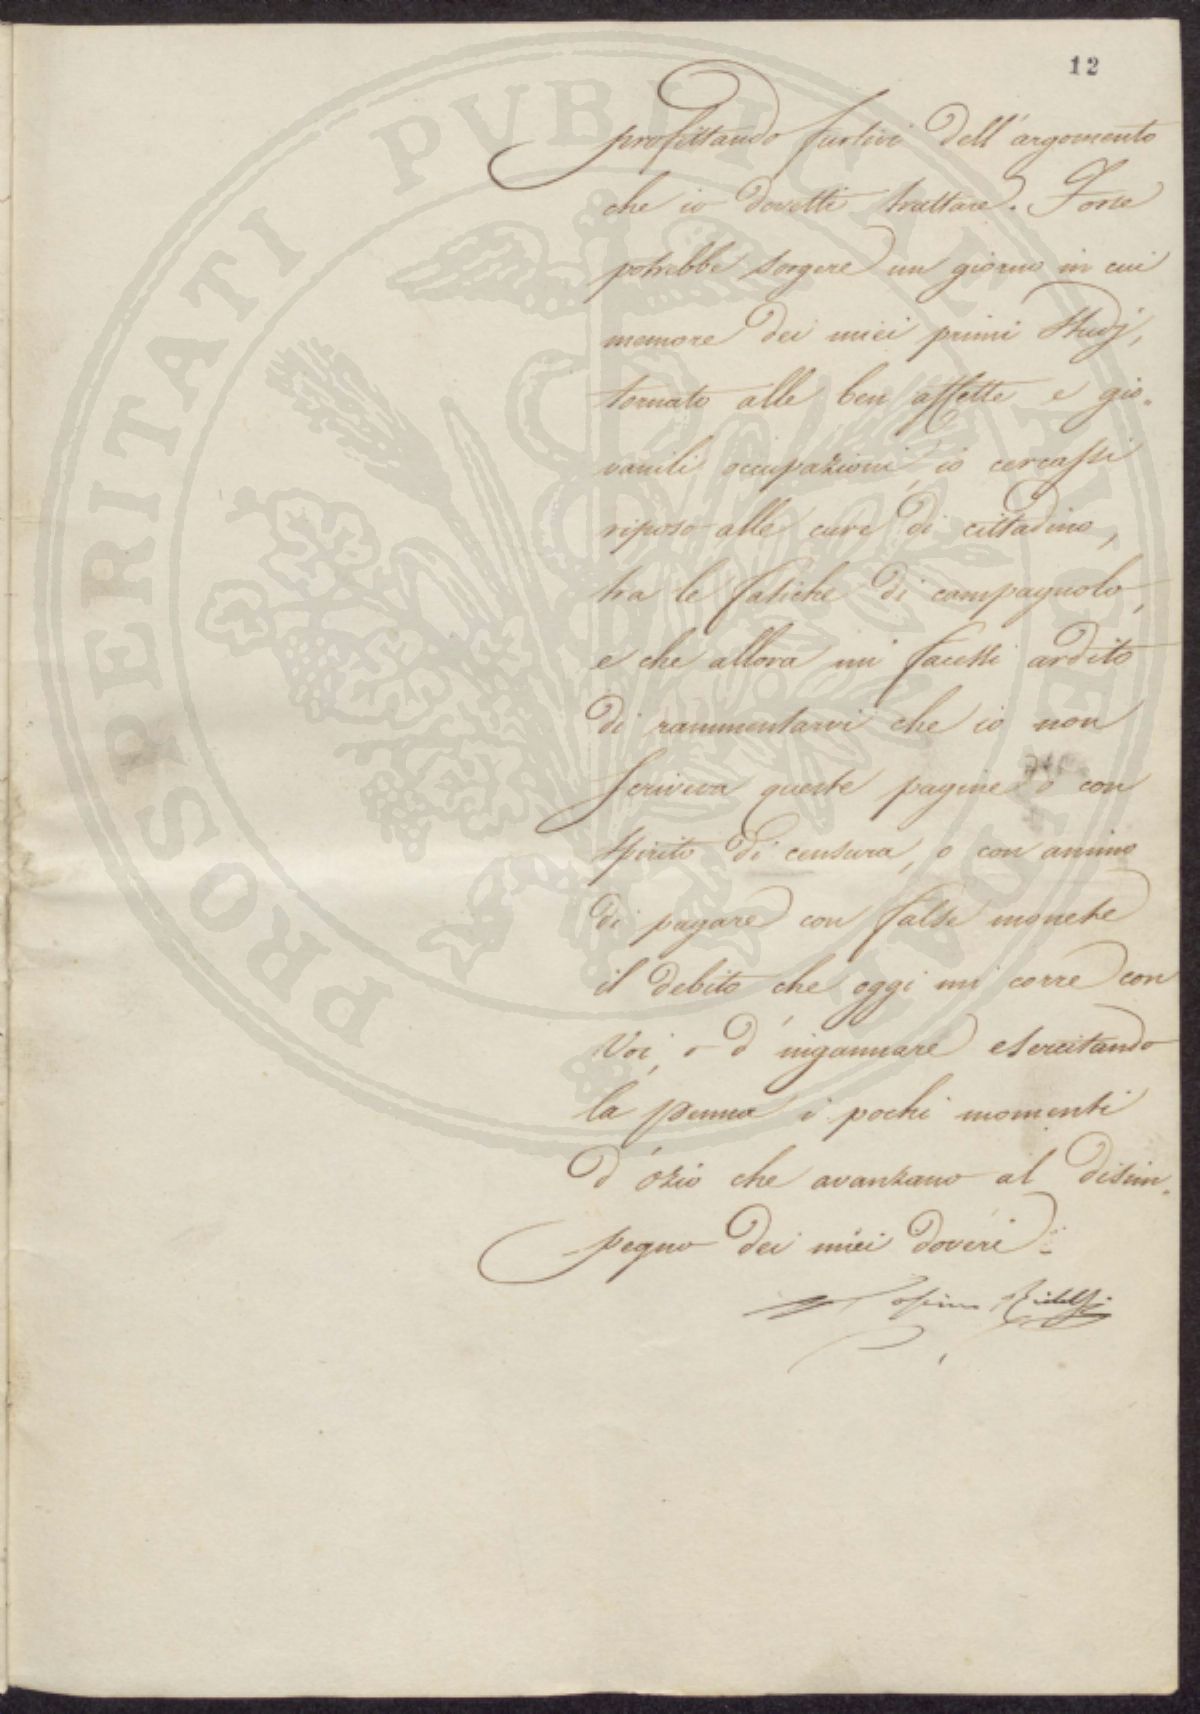 12
profittando furtivi dell'argomento
che io dovetti trattare. Forse
potrebbe sorgere un giorno in cui
memore dei miei primi studj,
tornato alle ben affette e gio=
vanili occupazioni, io cercassi
riposo alle cure di cittadino,
tra le fatiche di campagnolo,
e che allora mi facessi ardito
di rammentarvi che io non
scriveva queste pagine o con
spirito di censura, o con animo
di pagare con false monete
il debito che oggi mi corre con
Voi, o d'ingannare esercitando
la penna i pochi momenti
d'ozio che avanzano al disim=
pegno dei miei doveri.
Cosimo Ridolfi
PROSPERITATI PVBLICAE AVGENDAE